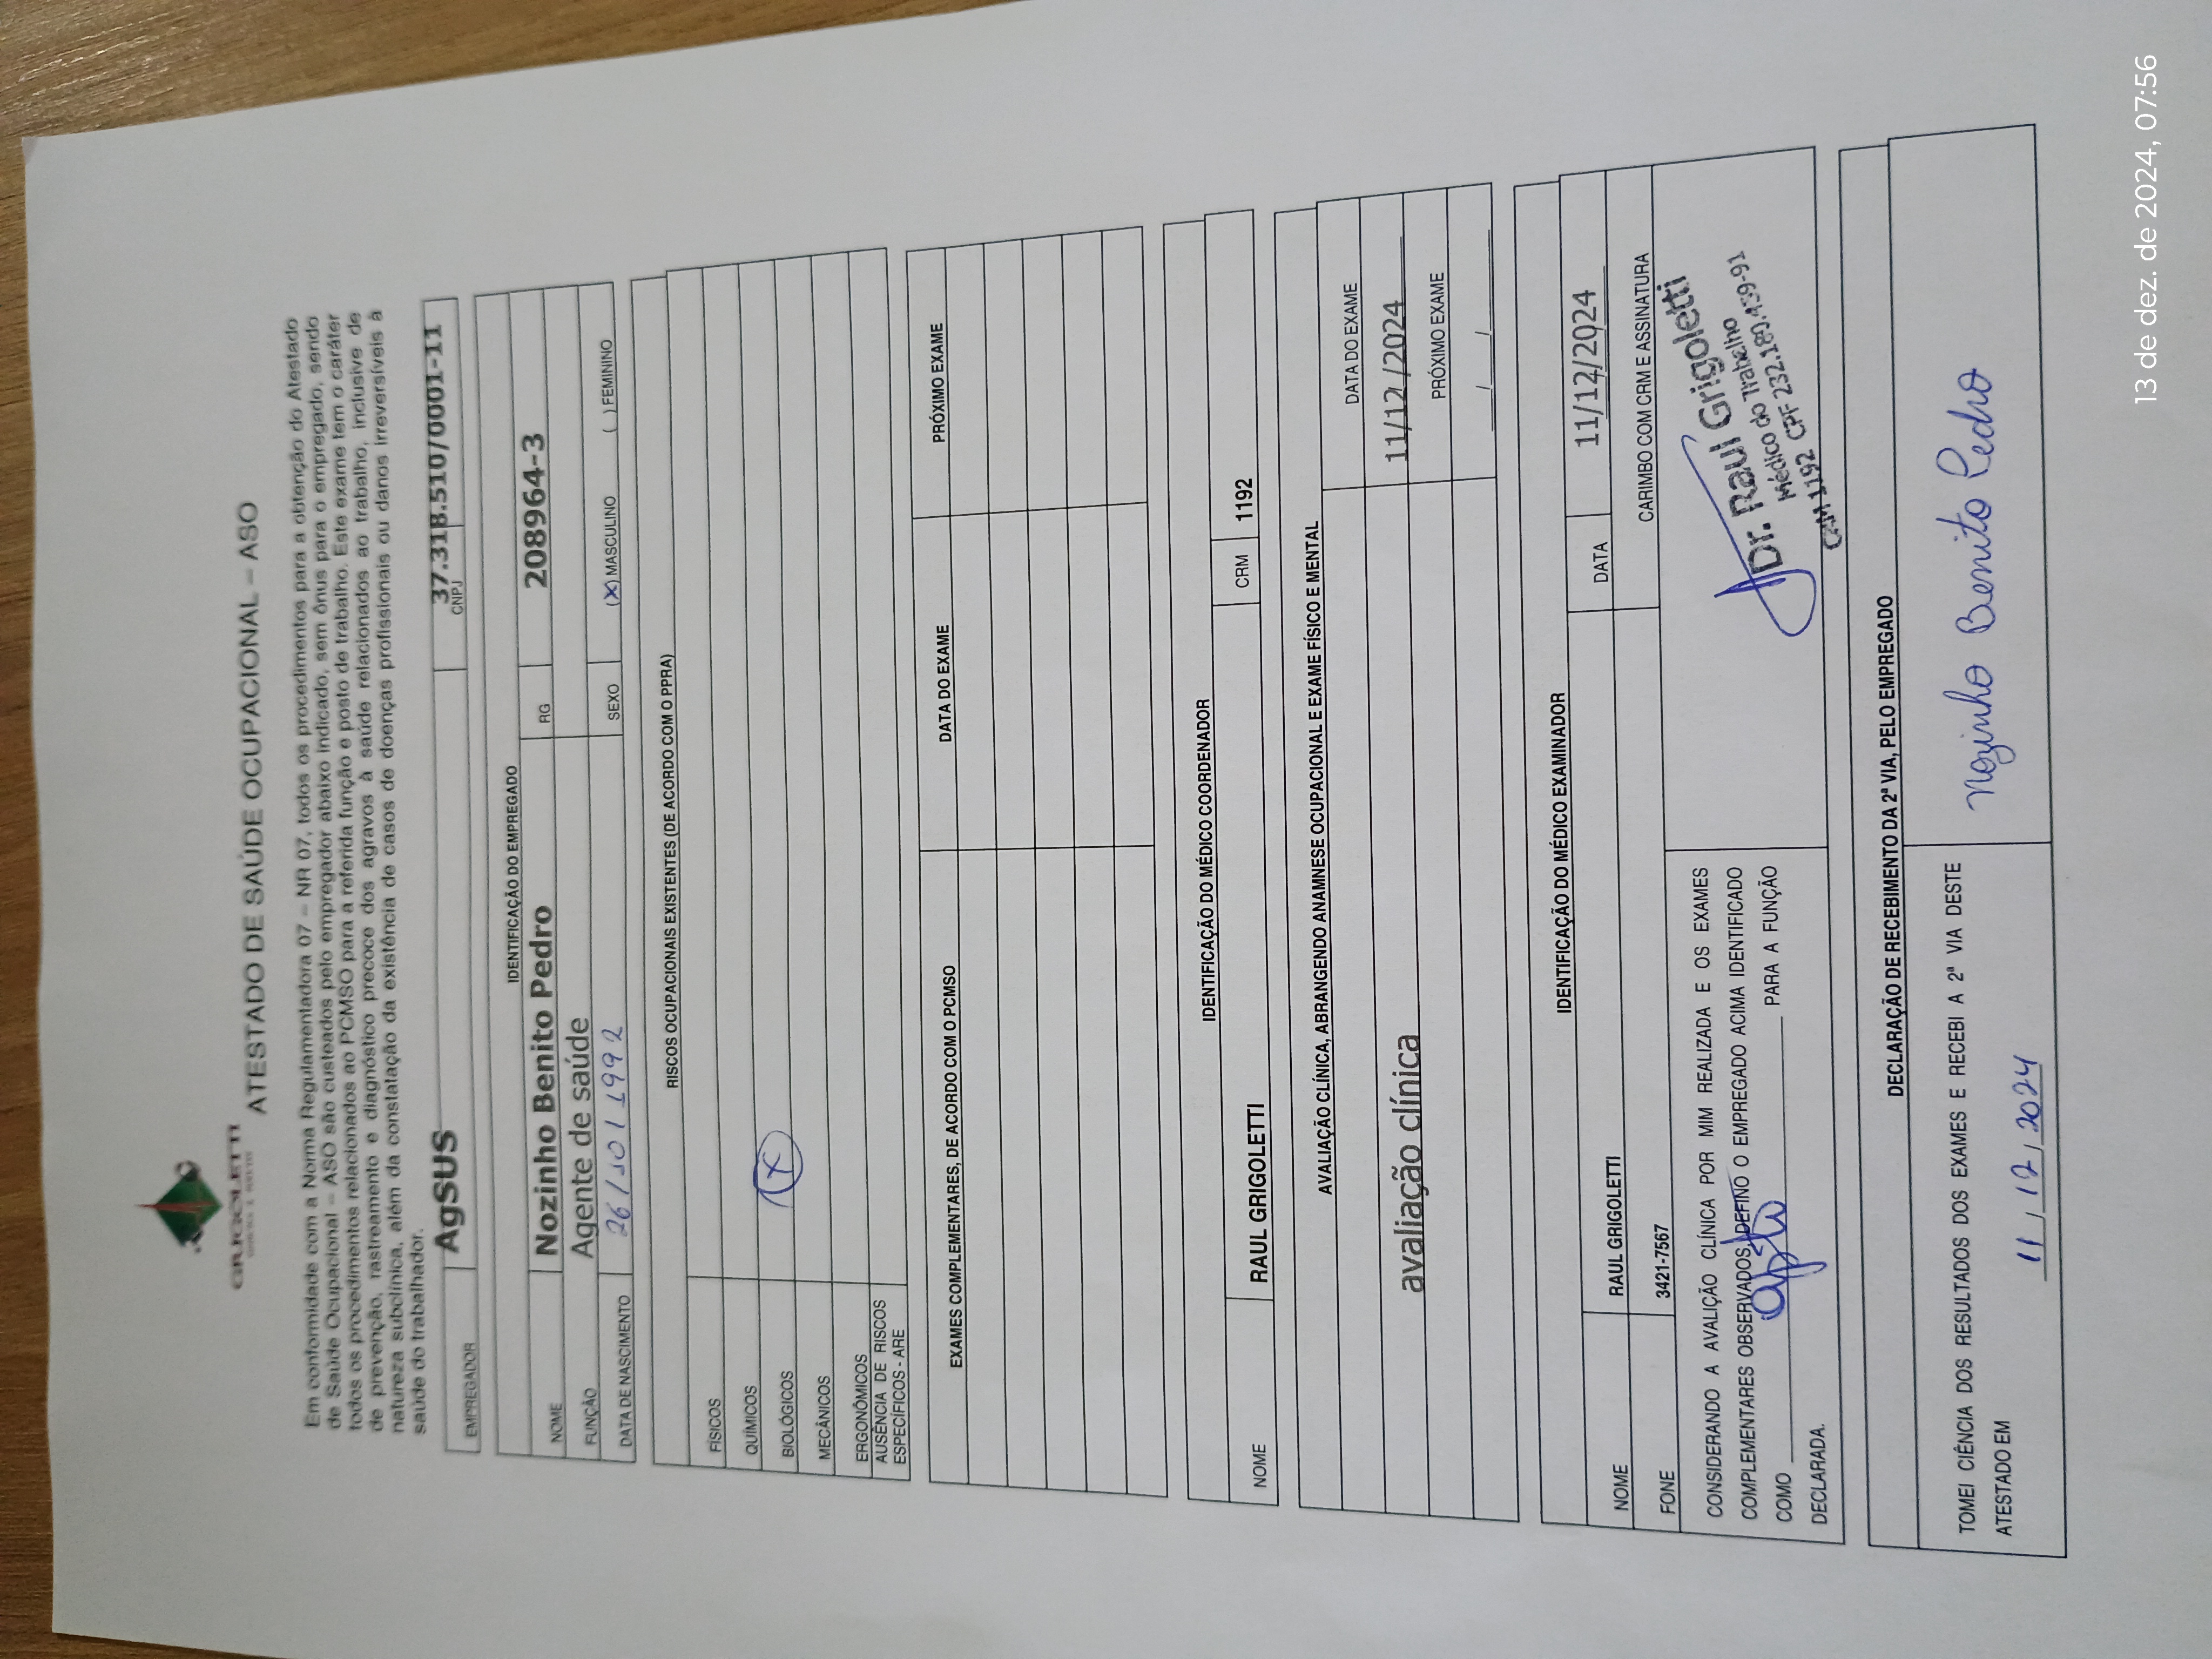 GRIGOLETTI
ATESTADO DE SAÚDE OCUPACIONAL – ASO
Em conformidade com a Norma Regulamentadora 07 – NR 07, todos os procedimentos para a obtenção do Atestado
de Saúde Ocupacional – ASO são custeados pelo empregador abaixo indicado, sem ônus para o empregado, sendo
todos os procedimentos relacionados ao PCMSO para a referida função e posto de trabalho. Este exame tem o caráter
de prevenção, rastreamento e diagnóstico precoce dos agravos à saúde relacionados ao trabalho, inclusive de
natureza subclínica, além da constatação da existência de casos de doenças profissionais ou danos irreversíveis à
saúde do trabalhador.
EMPREGADOR AgSUS CNPJ 37.318.510/0001-11
IDENTIFICAÇÃO DO EMPREGADO
NOME Nozinho Benito Pedro RG 208964-3
FUNÇÃO Agente de saúde
DATA DE NASCIMENTO 26/10/1992 SEXO (X) MASCULINO ( ) FEMININO
RISCOS OCUPACIONAIS EXISTENTES (DE ACORDO COM O PPRA)
FÍSICOS
QUÍMICOS
BIOLÓGICOS (X)
MECÂNICOS
ERGONÔMICOS
AUSÊNCIA DE RISCOS
ESPECÍFICOS - ARE
EXAMES COMPLEMENTARES, DE ACORDO COM O PCMSO DATA DO EXAME PRÓXIMO EXAME
IDENTIFICAÇÃO DO MÉDICO COORDENADOR
NOME RAUL GRIGOLETTI CRM 1192
AVALIAÇÃO CLÍNICA, ABRANGENDO ANAMNESE OCUPACIONAL E EXAME FÍSICO E MENTAL
DATA DO EXAME
avaliação clínica 11/12/2024
PRÓXIMO EXAME
___/___/______
IDENTIFICAÇÃO DO MÉDICO EXAMINADOR
NOME RAUL GRIGOLETTI DATA 11/12/2024
FONE 3421-7567 CARIMBO COM CRM E ASSINATURA
CONSIDERANDO A AVALIÇÃO CLÍNICA POR MIM REALIZADA E OS EXAMES
COMPLEMENTARES OBSERVADOS, DEFINO O EMPREGADO ACIMA IDENTIFICADO
COMO apto PARA A FUNÇÃO
DECLARADA.
Dr. Raul Grigoletti
Médico do Trabalho
CRM 1192 CPF 232.180.459-91
DECLARAÇÃO DE RECEBIMENTO DA 2ª VIA, PELO EMPREGADO
TOMEI CIÊNCIA DOS RESULTADOS DOS EXAMES E RECEBI A 2ª VIA DESTE
ATESTADO EM
11/12/2024
Nozinho Benito Pedro
13 de dez. de 2024, 07:56